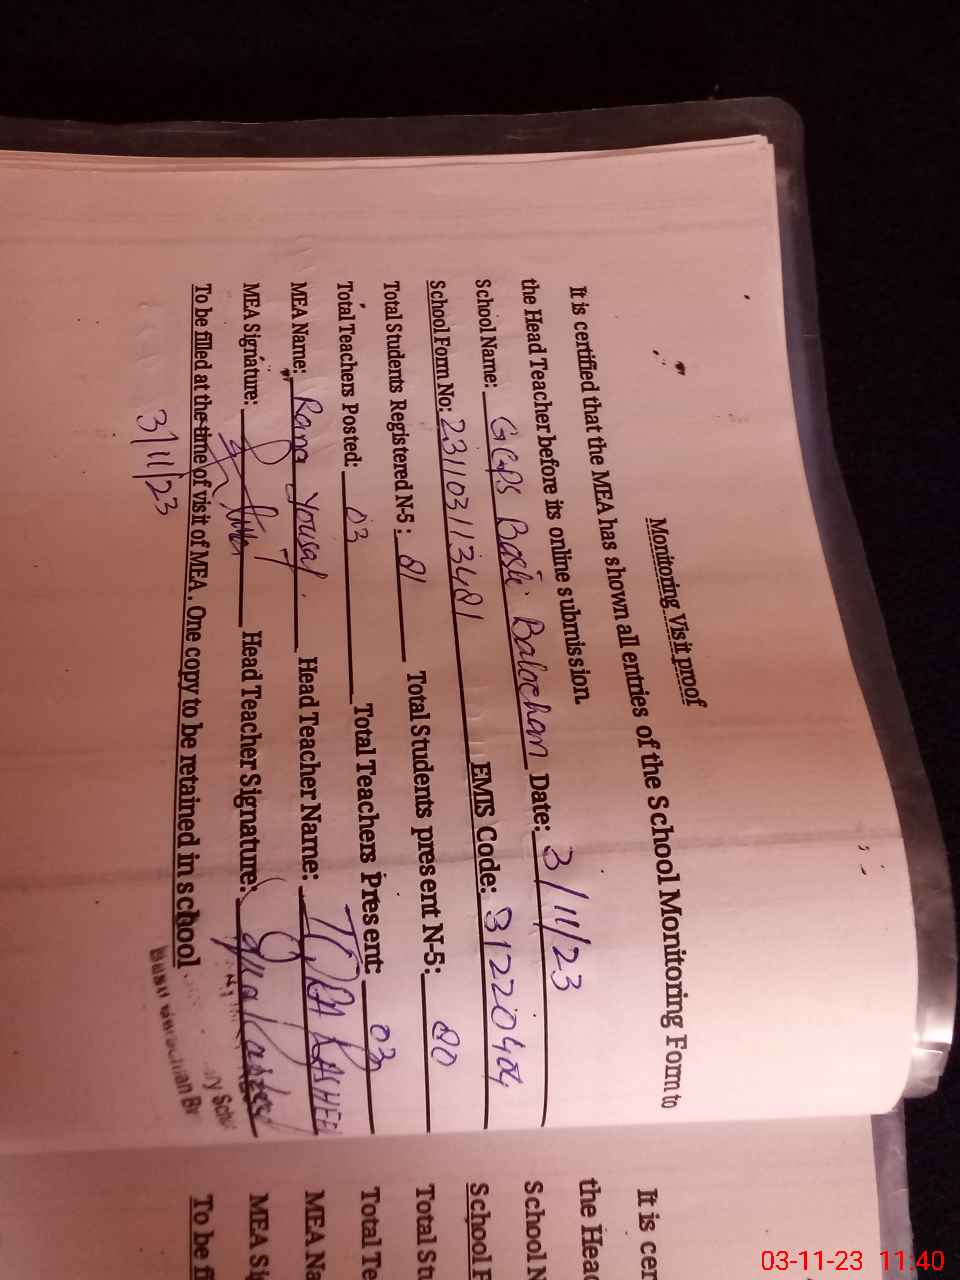 Monitoring Visit proof
It is certified that the MEA has shown all entries of the School Monitoring Form to
the Head Teacher before its online submission.
School Name: GGPS Basti Balochan Date: 3/11/23
School Form No: 231103113481 EMIS Code: 31220404
Total Students Registered N-5: 81 Total Students present N-5: 80
Total Teachers Posted: 03 Total Teachers Present: 03
MEA Name: Rana Yousaf. Head Teacher Name: IQRA RASHEE
MEA Signature: Head Teacher Signature:
To be filled at the time of visit of MEA. One copy to be retained in school
3/11/23
It is cer
the Head
School N
School F
Total Stu
Total Te
MEA Na
MEA Si
To be fi
03-11-23 11:40